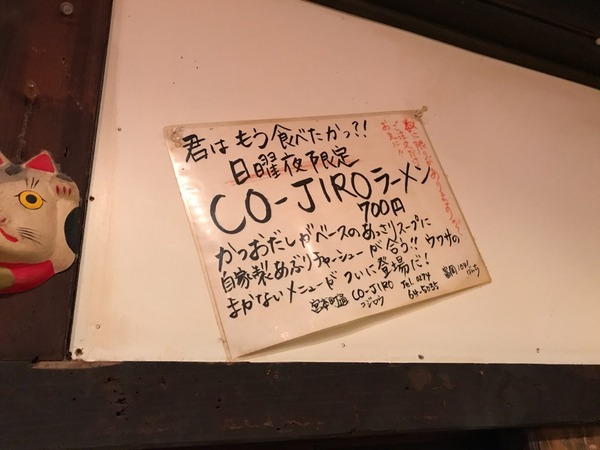 君はもう食べたかっ?!
日曜夜限定
CO-JIROラーメン
700円
かつおだしがベースのあっさりスープに
自家製あぶりチャーシューが合う!! ウワサの
まかないメニューがついに登場だ!
宮本町店 CO-JIRO TEL 0274
コジロウ 64-5035